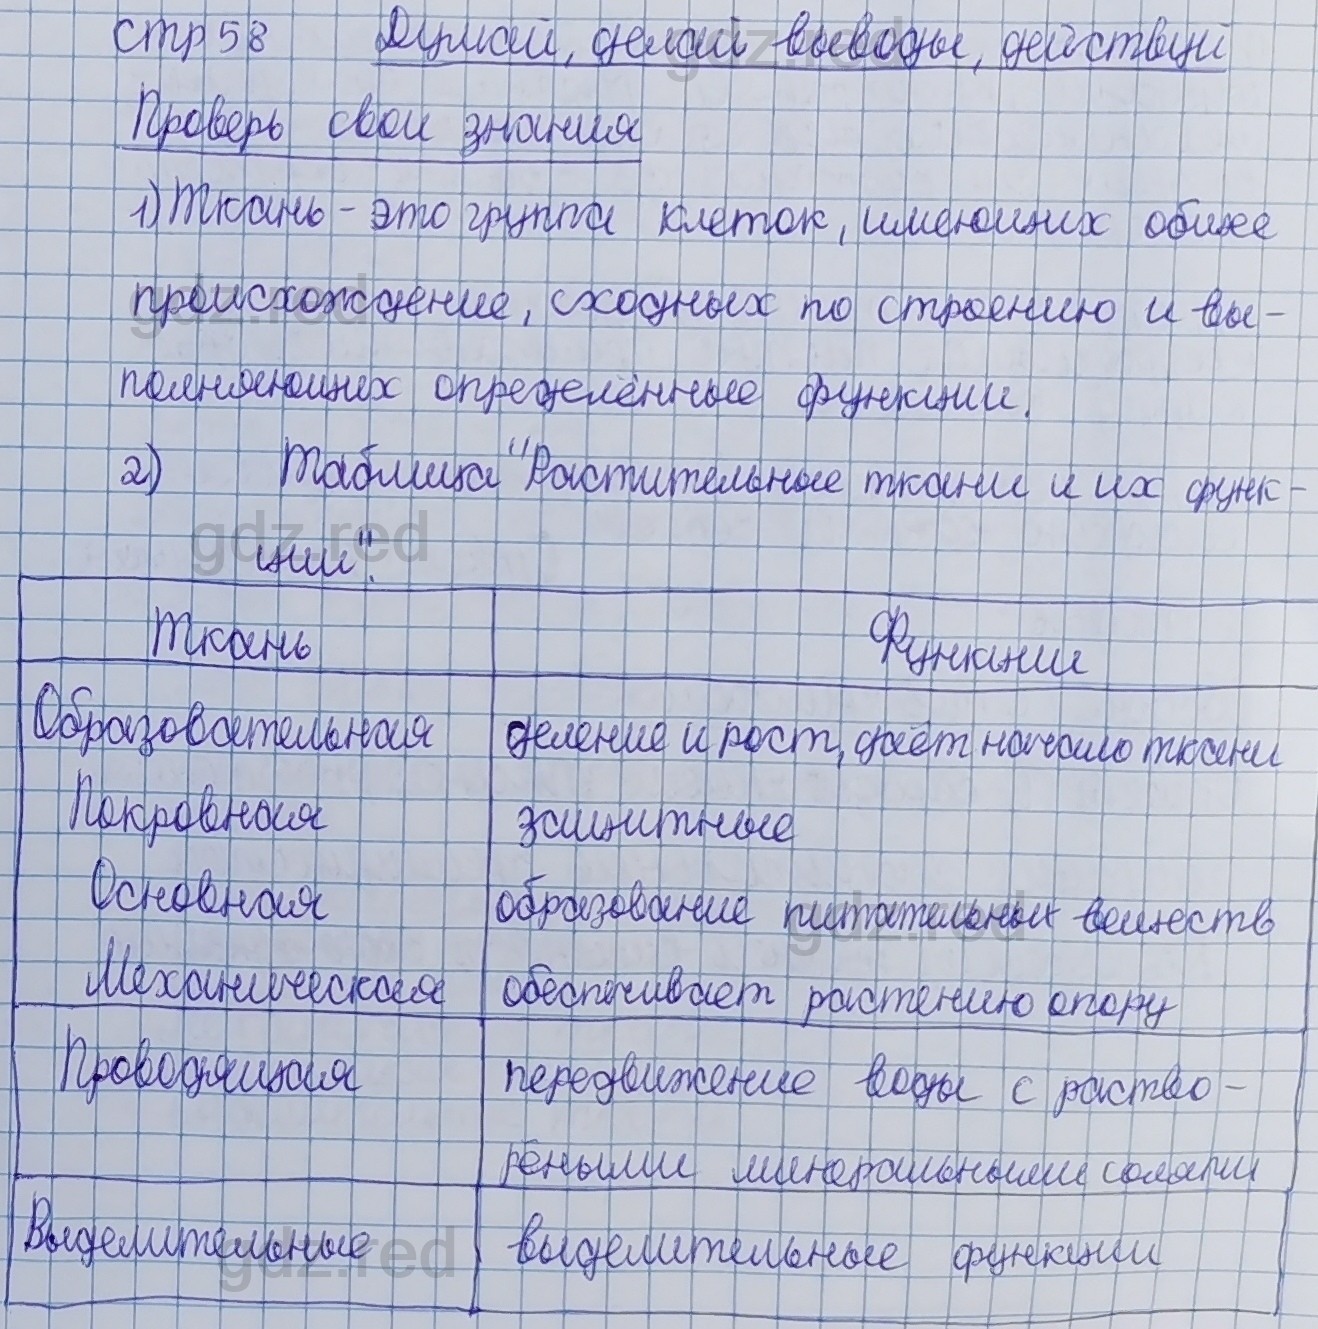 стр 58 Думай, делай выводы, действуй
Проверь свои знания
1) Ткань - это группа клеток, имеющих общее
происхождение, сходных по строению и вы-
полняющих определённые функции.
2) Таблица "Растительные ткани и их функ-
ции".
Ткань Функции
Образовательная деление и рост, даёт начало ткани
Покровная защитные
Основная образование питательных веществ
Механическая обеспечивает растению опору
Проводящая передвижение воды с раство-
рёными минеральными солями
Выделительные выделительные функции
gdz.red
gdz.red
gdz.red
gdz.red
gdz.red